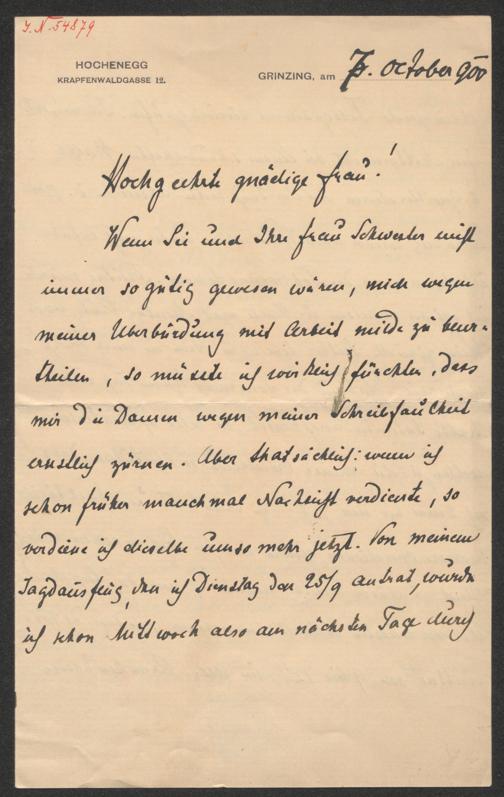 J.N. 54879
HOCHENEGG
KRAPFENWALDGASSE 12.
GRINZING, am 7. October 900
Hochgeehrte gnädige Frau!
Wenn Sie und Ihre Frau Schwester nicht
immer so gütig gewesen wären, mich wegen
meiner Überbürdung mit Arbeit milde zu beur-
theilen, so müsste ich wirklich fürchten, dass
mir die Damen wegen meiner Schreibfaulheit
ernstlich zürnen. Aber thatsächlich: wenn ich
schon früher manchmal Nachsicht verdiente, so
verdiene ich dieselbe umso mehr jetzt. Von meinem
Jagdausflug, den ich Dienstag den 25/9 antrat, wurde
ich schon Mittwoch also am nächsten Tage durch